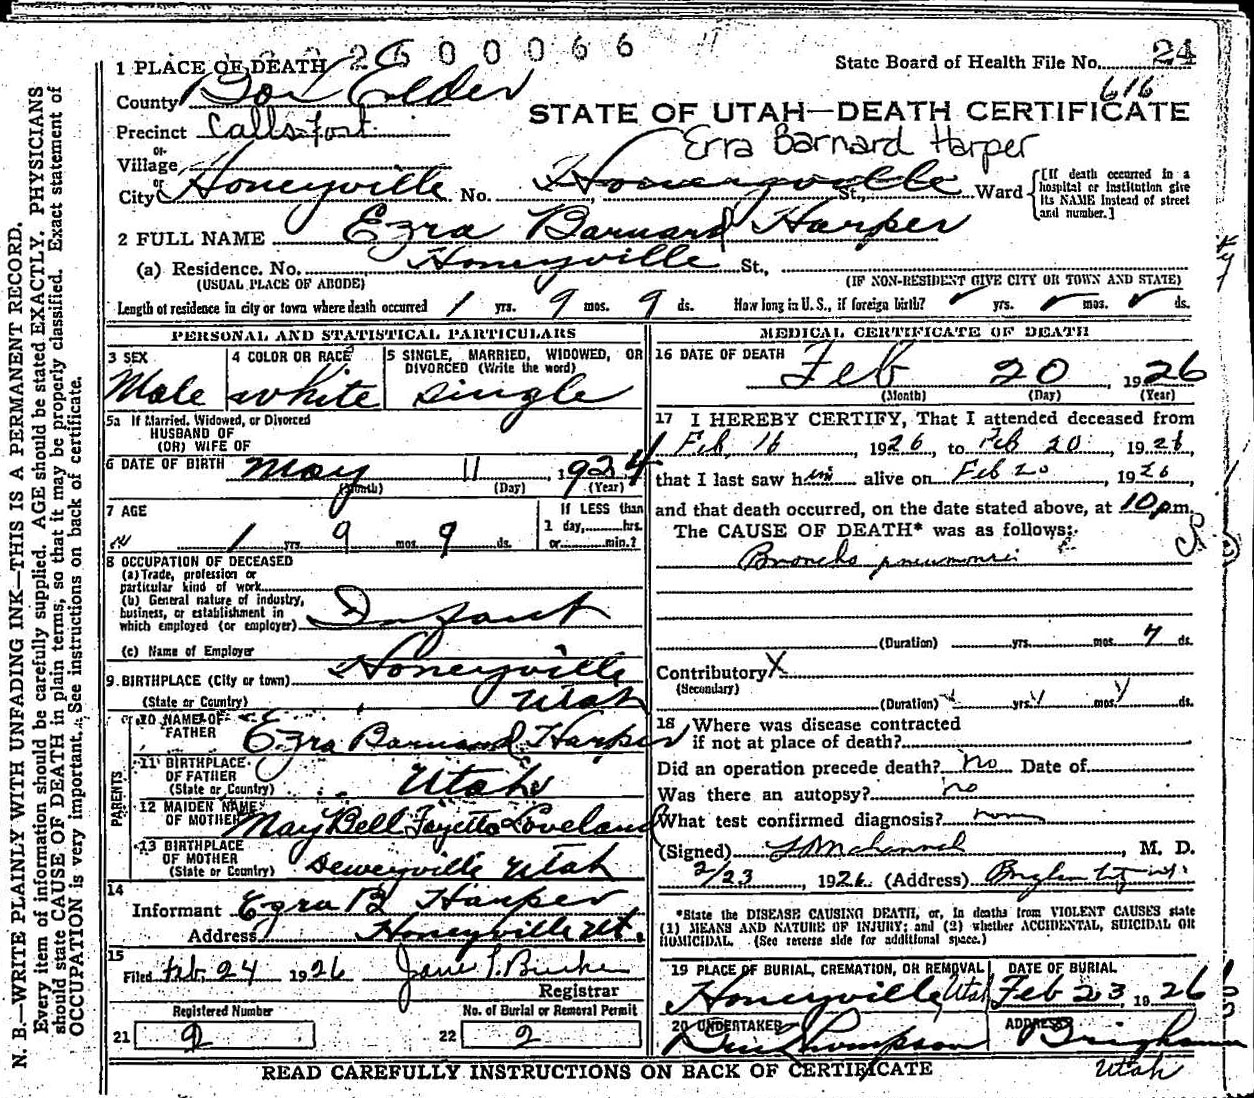 2600066
1 PLACE OF DEATH
State Board of Health File No. 24
616
County Box Elder
STATE OF UTAH—DEATH CERTIFICATE
Precinct Callsfort
Erra Barnard Harper
or
Village
or
City Honeyville No. Honeyville St., Ward
[If death occurred in a hospital or institution give its NAME instead of street and number.]
2 FULL NAME Ezra Barnard Harper
(a) Residence. No. Honeyville St.,
(USUAL PLACE OF ABODE) (IF NON-RESIDENT GIVE CITY OR TOWN AND STATE)
Length of residence in city or town where death occurred 1 yrs. 9 mos. 9 ds. How long in U.S., if foreign birth? yrs. mos. ds.
PERSONAL AND STATISTICAL PARTICULARS
3 SEX Male
4 COLOR OR RACE white
5 SINGLE, MARRIED, WIDOWED, OR DIVORCED (Write the word) single
5a If Married, Widowed, or Divorced
HUSBAND OF
(OR) WIFE OF
6 DATE OF BIRTH May 11, 1924
(Month) (Day) (Year)
7 AGE
1 yrs. 9 mos. 9 ds.
If LESS than
1 day,........hrs.
or............min.?
8 OCCUPATION OF DECEASED
(a) Trade, profession or
particular kind of work
(b) General nature of industry,
business, or establishment in
which employed (or employer) Infant
(c) Name of Employer
9 BIRTHPLACE (City or town) Honeyville
(State or Country) Utah
PARENTS
10 NAME OF
FATHER Ezra Barnard Harper
11 BIRTHPLACE
OF FATHER
(State or Country) Utah
12 MAIDEN NAME
OF MOTHER May Bell Fayetta Loveland
13 BIRTHPLACE
OF MOTHER
(State or Country) Deweyville Utah
14
Informant Ezra B Harper
Address Honeyville Ut.
15
Filed Feb. 24 1926
Registrar
Registered Number
21 9
No. of Burial or Removal Permit
22 2
MEDICAL CERTIFICATE OF DEATH
16 DATE OF DEATH
Feb 20, 1926
(Month) (Day) (Year)
17 I HEREBY CERTIFY, That I attended deceased from
Feb, 16, 1926, to Feb 20, 1926,
that I last saw him alive on Feb 20, 1926,
and that death occurred, on the date stated above, at 10 p.m.
The CAUSE OF DEATH* was as follows:
Broncho pneumonia
(Duration) yrs. mos. 4 ds.
Contributory X
(Secondary)
(Duration) yrs. mos. ds.
18 Where was disease contracted
if not at place of death?
Did an operation precede death? No Date of
Was there an autopsy? no
What test confirmed diagnosis?
(Signed) , M. D.
2/23, 1926 (Address)
*State the DISEASE CAUSING DEATH, or, in deaths from VIOLENT CAUSES state
(1) MEANS AND NATURE OF INJURY; and (2) whether ACCIDENTAL, SUICIDAL OR
HOMICIDAL. (See reverse side for additional space.)
19 PLACE OF BURIAL, CREMATION, OR REMOVAL DATE OF BURIAL
Honeyville Utah Feb 23, 1926
20 UNDERTAKER ADDRESS
Thompson Brigham
Utah
READ CAREFULLY INSTRUCTIONS ON BACK OF CERTIFICATE
N. B.—WRITE PLAINLY WITH UNFADING INK—THIS IS A PERMANENT RECORD.
Every item of information should be carefully supplied. AGE should be stated EXACTLY. PHYSICIANS
should state CAUSE OF DEATH in plain terms, so that it may be properly classified. Exact statement of
OCCUPATION is very important. See instructions on back of certificate.